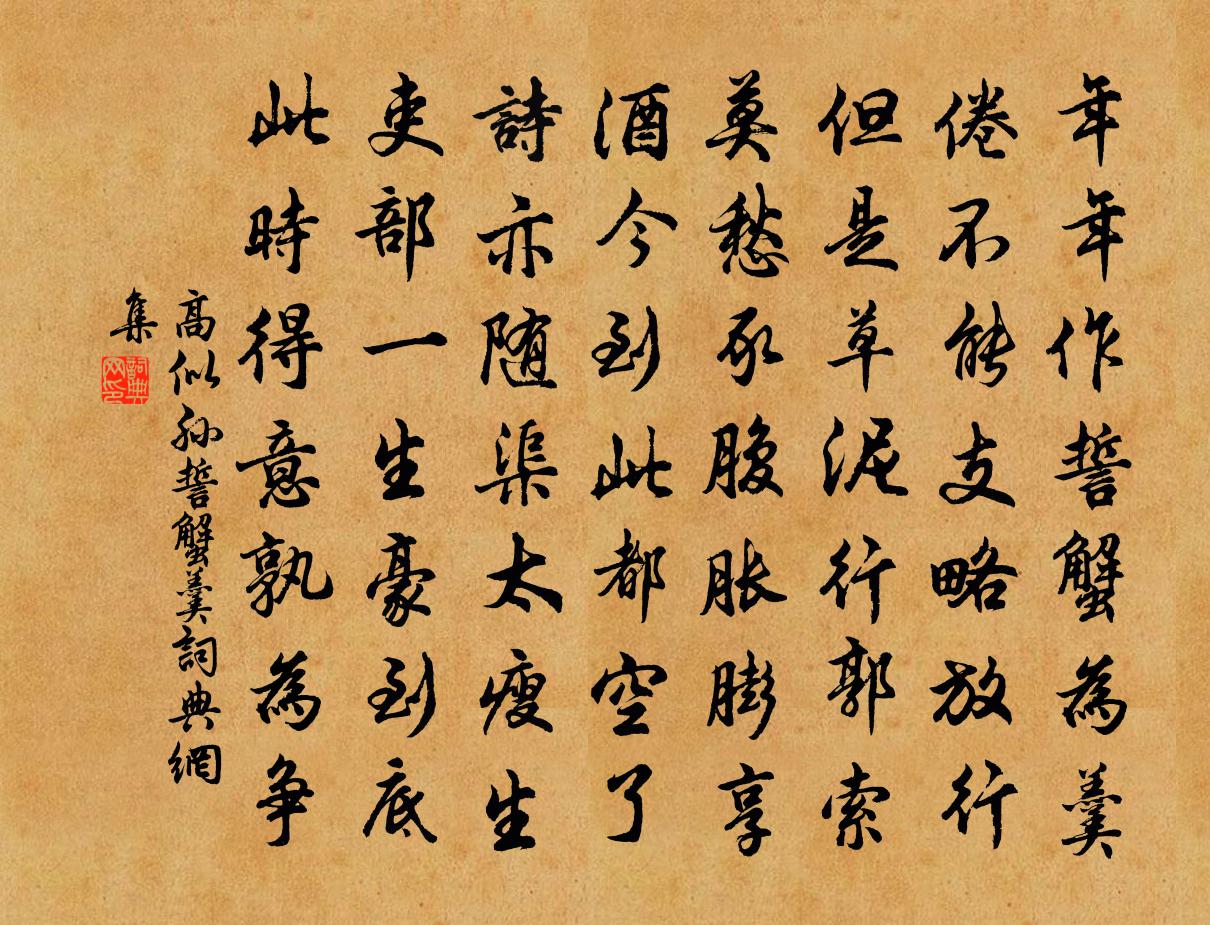 年年作誓蟹為羹
倦不能支略放行
但是草泥行郭索
莫愁豕腹脹膨享
酒今到此都空了
詩亦随渠太瘦生
吏部一生豪到底
此時得意孰為争
高似孙誓蟹羹詞典網
集
詞典网印